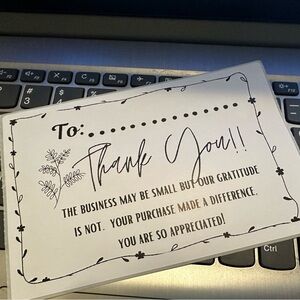 To:..................
Thank You!!
THE BUSINESS MAY BE SMALL BUT OUR GRATITUDE
IS NOT. YOUR PURCHASE MADE A DIFFERENCE.
YOU ARE SO APPRECIATED!
Ctrl